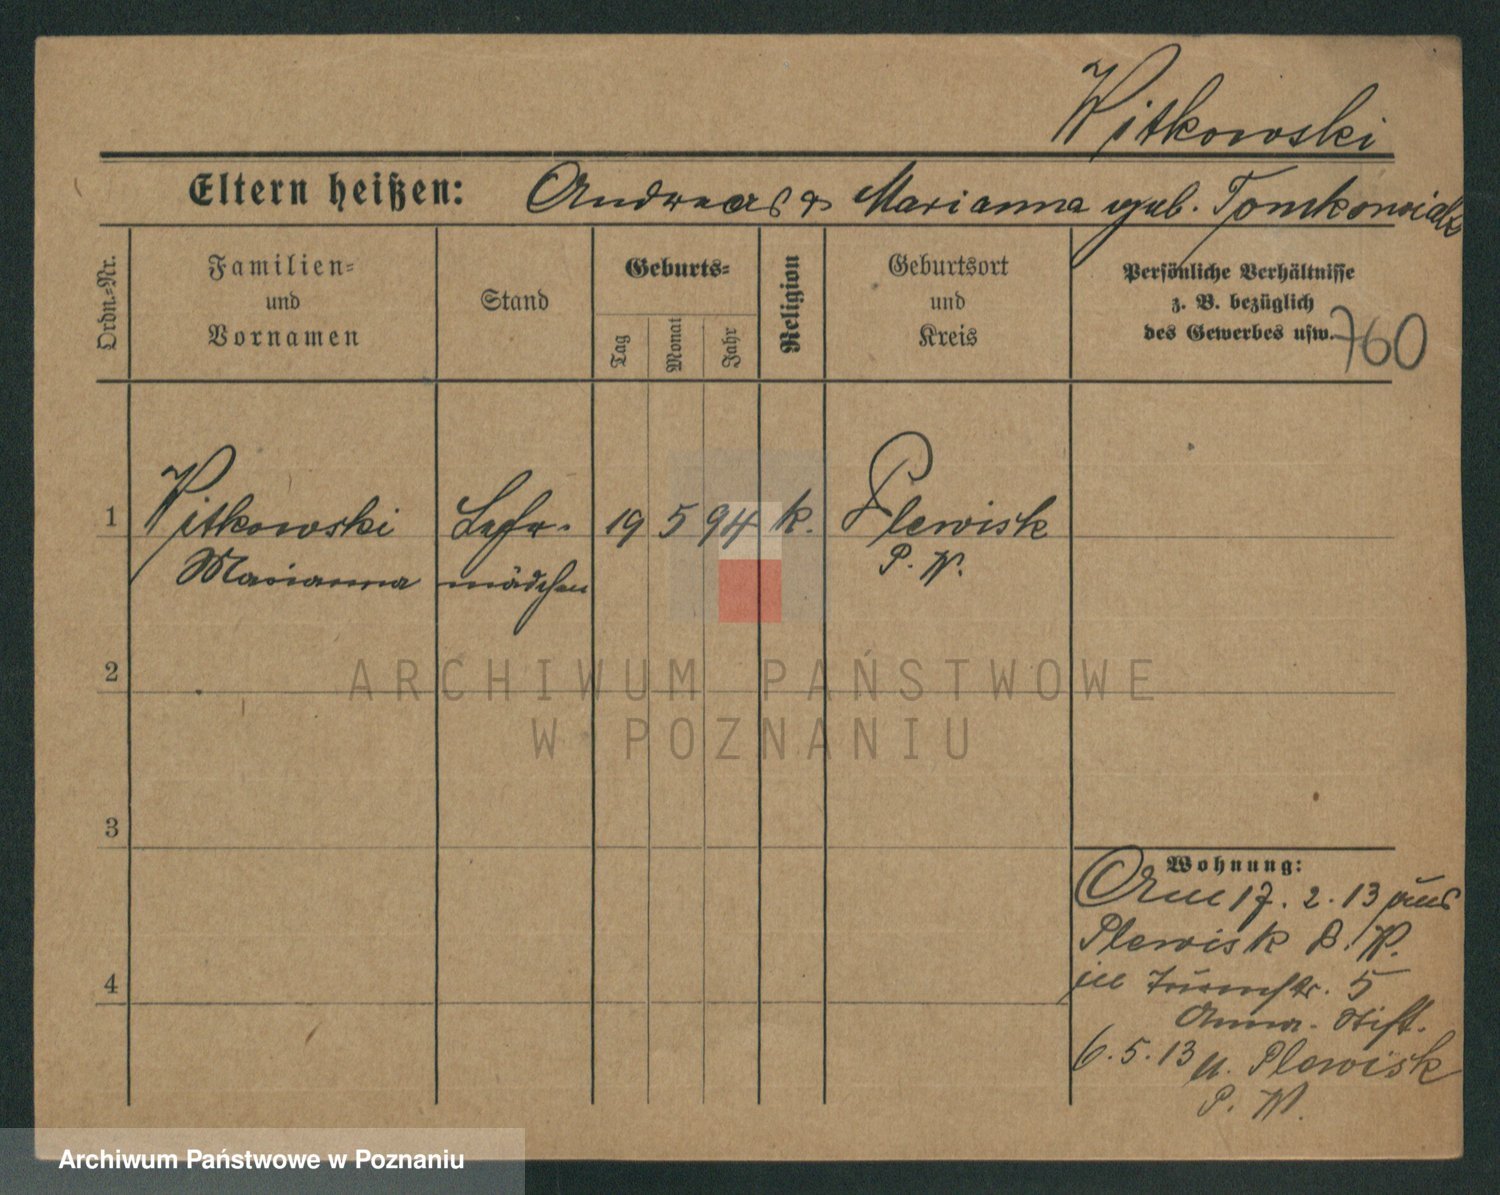 Witkowski
Eltern heißen: Andreas & Marianna geb. Tomkowiak
Ordn.-Nr.
Familien-
und
Vornamen
Stand
Geburts-
Tag
Monat
Jahr
Religion
Geburtsort
und
Kreis
Persönliche Verhältnisse
z. B. bezüglich
des Gewerbes usw.
760
1 Witkowski Lehr- 19 5 94 k. Plewisk
Marianna mädchen P. W.
2
3
4
Wohnung:
Am 17. 2. 13 aus
Plewisk P. W.
in Turmstr. 5
Anna-Stift.
6. 5. 13 n. Plewisk
P. W.
ARCHIWUM PAŃSTWOWE
W POZNANIU
Archiwum Państwowe w Poznaniu